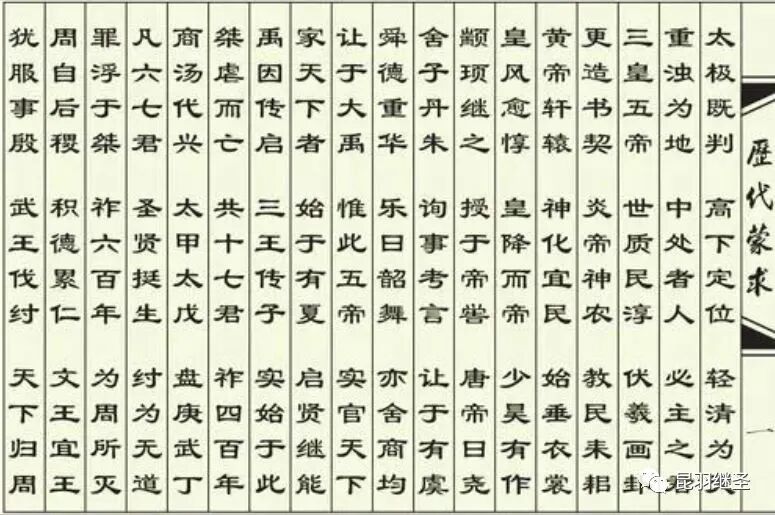 歷代蒙求
一
太极既判 高下定位 轻清为
重浊为地 中处者人 必主之君
三皇五帝 世质民淳 伏羲画卦
更造书契 炎帝神农 教民耒耜
黄帝轩辕 神化宜民 始垂衣裳
皇风愈惇 皇降而帝 少昊有作
颛顼继之 授于帝喾 唐帝曰尧
舍子丹朱 询事考言 让于有虞
舜德重华 乐曰韶舞 亦舍商均
让于大禹 惟此五帝 实官天下
家天下者 始于有夏 启贤继能
禹因传启 三王传子 实始于此
桀虐而亡 共十七君 祚四百年
商汤代兴 太甲太戊 盘庚武丁
凡六七君 圣贤挺生 纣为无道
罪浮于桀 祚六百年 为周所灭
周自后稷 积德累仁 文王宜王
犹服事殷 武王伐纣 天下归周
昆羽继圣